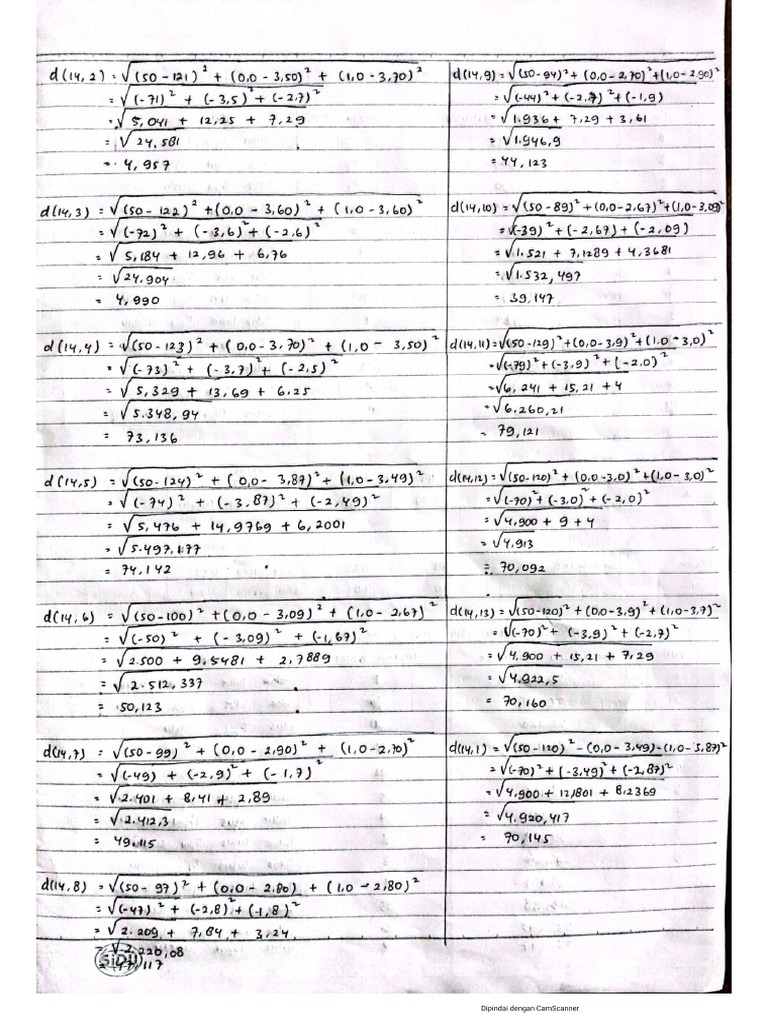 d(14,2) = √(50-121)² + (0,0-3,50)² + (1,0-3,70)²
= √(-71)² + (-3,5)² + (-2,7)²
= √5,041 + 12,25 + 7,29
= √24,581
= 4,957
d(14,3) = √(50-122)² + (0,0-3,60)² + (1,0-3,60)²
= √(-72)² + (-3,6)² + (-2,6)²
= √5,184 + 12,96 + 6,76
= √24,904
= 4,990
d(14,4) = √(50-123)² + (0,0-3,70)² + (1,0-3,50)²
= √(-73)² + (-3,7)² + (-2,5)²
= √5,329 + 13,69 + 6,25
= √5.348,94
= 73,136
d(14,5) = √(50-124)² + (0,0-3,87)² + (1,0-3,49)²
= √(-74)² + (-3,87)² + (-2,49)²
= √5,476 + 14,9769 + 6,2001
= √5.497,177
= 74,142
d(14,6) = √(50-100)² + (0,0-3,09)² + (1,0-2,67)²
= √(-50)² + (-3,09)² + (-1,67)²
= √2.500 + 9,5481 + 2,7889
= √2.512,337
= 50,123
d(14,7) = √(50-99)² + (0,0-2,90)² + (1,0-2,70)²
= √(-49) + (-2,9)² + (-1,7)²
= √2.401 + 8,41 + 2,89
= √2.412,3
= 49,115
d(14,8) = √(50-97)² + (0,0-2,80) + (1,0-2,80)²
= √(-47)² + (-2,8)² + (-1,8)²
= √2.209 + 7,84 + 3,24
= √2.220,08
= 47,117
SiDU
d(14,9) = √(50-94)² + (0,0-2,70)² + (1,0-2,90)²
= √(-44)² + (-2,7)² + (-1,9)
= √1.936 + 7,29 + 3,61
= √1.946,9
= 44,123
d(14,10) = √(50-89)² + (0,0-2,67)² + (1,0-3,09)²
= √(-39)² + (-2,67) + (-2,09)
= √1.521 + 7,1289 + 4,3681
= √1.532,497
= 39,147
d(14,11) = √(50-129)² + (0,0-3,9)² + (1,0-3,0)²
= √(-79)² + (-3,9)² + (-2,0)²
= √6,241 + 15,21 + 4
= √6.260,21
= 79,121
d(14,12) = √(50-120)² + (0,0-3,0)² + (1,0-3,0)²
= √(-70)² + (-3,0)² + (-2,0)²
= √4,900 + 9 + 4
= √4,913
= 70,092
d(14,13) = √(50-120)² + (0,0-3,9)² + (1,0-3,7)²
= √(-70)² + (-3,9)² + (-2,7)²
= √4.900 + 15,21 + 7,29
= √4.922,5
= 70,160
d(14,1) = √(50-120)² - (0,0-3,49) - (1,0-3,87)²
= √(-70)² + (-3,49)² + (-2,87)²
= √4,900 + 12,1801 + 8,2369
= √4.920,417
= 70,145
Dipindai dengan CamScanner